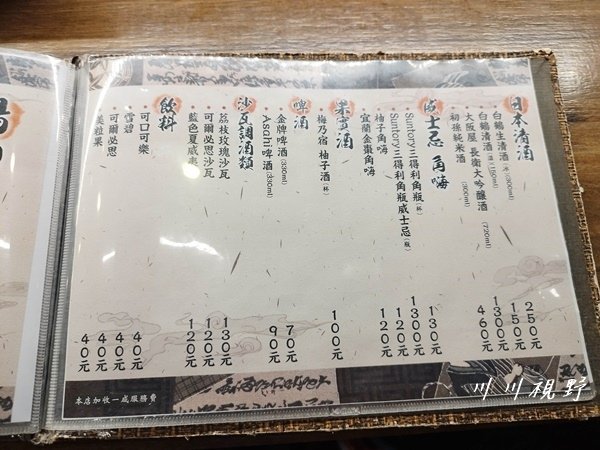 日本清酒
白鶴生清酒(冰)(300ml) 250元
白鶴清酒(溫)(150ml) 150元
大阪屋 長衛大吟釀酒 (720ml) 1300元
初孫純米酒 460元
威士忌 角嗨
Suntory三得利角瓶(杯) 130元
Suntory三得利角瓶威士忌(瓶) 1300元
柚子角嗨 120元
宜蘭金棗角嗨 120元
果實酒
梅乃宿 柚子酒(杯) 100元
啤酒
金牌啤酒(330ml) 70元
Asahi啤酒(330ml) 90元
沙瓦調酒類
荔枝玫瑰沙瓦 130元
可爾必思沙瓦 120元
藍色夏威夷 120元
飲料
可口可樂 40元
雪碧 40元
可爾必思 40元
美粒果 40元
本店加收一成服務費
川川視野